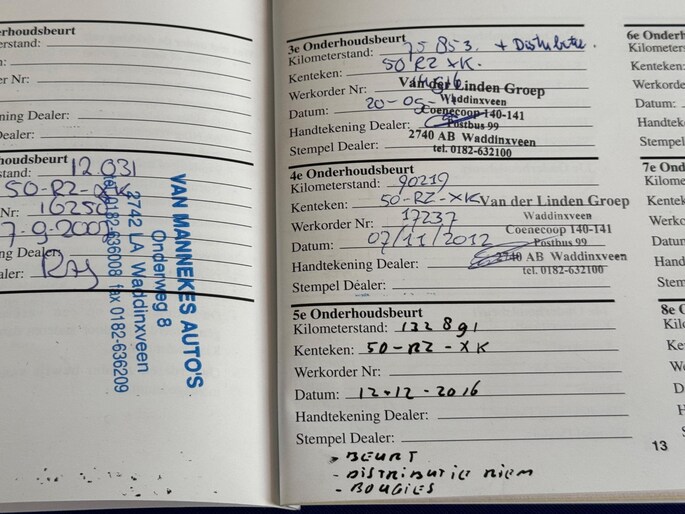 Onderhoudsbeurt
erstand:
er Nr:
ening Dealer:
Dealer:
houdsbeurt
stand: 12 031
50-RZ-XK
Nr: 16250
ng Dealer:
aler:
VAN MANNEKES AUTO'S
Onderweg 8
2742 LA Waddinxveen
tel. 0182-636008 fax 0182-636209
3e Onderhoudsbeurt
Kilometerstand: 75 853. + Distributie.
Kenteken: 50 RZ XK.
Werkorder Nr:
Datum: 20-05-
Handtekening Dealer:
Stempel Dealer:
Van der Linden Groep
Waddinxveen
Coenecoop 140-141
Postbus 99
2740 AB Waddinxveen
tel. 0182-632100
4e Onderhoudsbeurt
Kilometerstand: 90219
Kenteken: 50-RZ-XK
Werkorder Nr: 17237
Datum: 07/11/2012
Handtekening Dealer:
Stempel Dealer:
Van der Linden Groep
Waddinxveen
Coenecoop 140-141
Postbus 99
2740 AB Waddinxveen
tel. 0182-632100
5e Onderhoudsbeurt
Kilometerstand: 132891
Kenteken: 50-RZ-XK
Werkorder Nr:
Datum: 12-12-2016
Handtekening Dealer:
Stempel Dealer:
- BEURT
- DISTRIBUTIE RIEM
- BOUGIES
6e On
Kilomet
Kenteke
Werkor
Datum:
Handte
Stempe
7e On
Kilome
Kentek
Werkc
Datu
Hand
Stem
8e O
Kilo
Ke
W
D
H
S
13